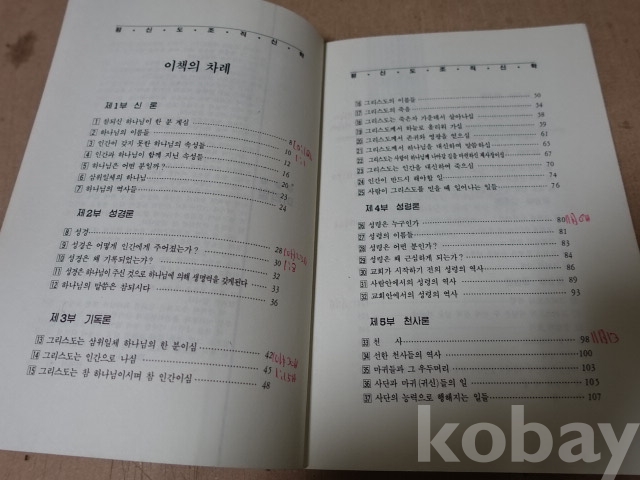 평·신·도·조·직·신·학
이책의 차례
제1부 신 론
1 참되신 하나님이 한 분 계심 8
2 하나님의 이름들 10
3 인간이 갖지 못한 하나님의 속성들 12
4 인간과 하나님이 함께 지닌 속성들 16
5 하나님은 어떤 분일까? 20
6 삼위일체의 하나님 26
7 하나님의 역사들 24
제2부 성경론
8 성경 28
9 성경은 어떻게 인간에게 주어졌는가? 30
10 성경은 왜 기록되었는가? 32
11 성경은 하나님이 주신 것으로 하나님에 의해 생명력을 갖게된다 33
12 하나님의 말씀은 참되시다 36
제3부 기독론
13 그리스도는 삼위일체 하나님의 한 분이심 42
14 그리스도는 인간으로 나심 45
15 그리스도는 참 하나님이시며 참 인간이심 48
평·신·도·조·직·신·학
16 그리스도의 이름들 50
17 그리스도의 죽음 54
18 그리스도는 죽은자 가운데서 살아나심 58
19 그리스도께서 하늘로 올리워 가심
20 그리스도께서 존귀와 영광을 얻으심 61
21 그리스도께서 하나님을 대신하여 말씀하심
22 그리스도는 사람이 하나님께 나아갈 길을 마련하신 제사장이심
23 그리스도는 인간을 대신하여 죽으심
24 인간이 반드시 해야할 일
25 사람이 그리스도를 믿을 때 일어나는 일들 76
제4부 성령론
26 성령은 누구인가 80
27 성령의 이름들 81
28 성령은 어떤 분인가? 83
29 성령은 왜 근심하게 되는가? 84
30 교회가 시작하기 전의 성령의 역사 86
31 사람안에서의 성령의 역사 89
32 교회안에서의 성령의 역사 93
제5부 천사론
33 천 사 98
34 선한 천사들의 역사 100
35 마귀들과 그 우두머리 103
36 사단과 마귀(귀신)들의 일 105
37 사단의 능력으로 행해지는 일들 107
kobay